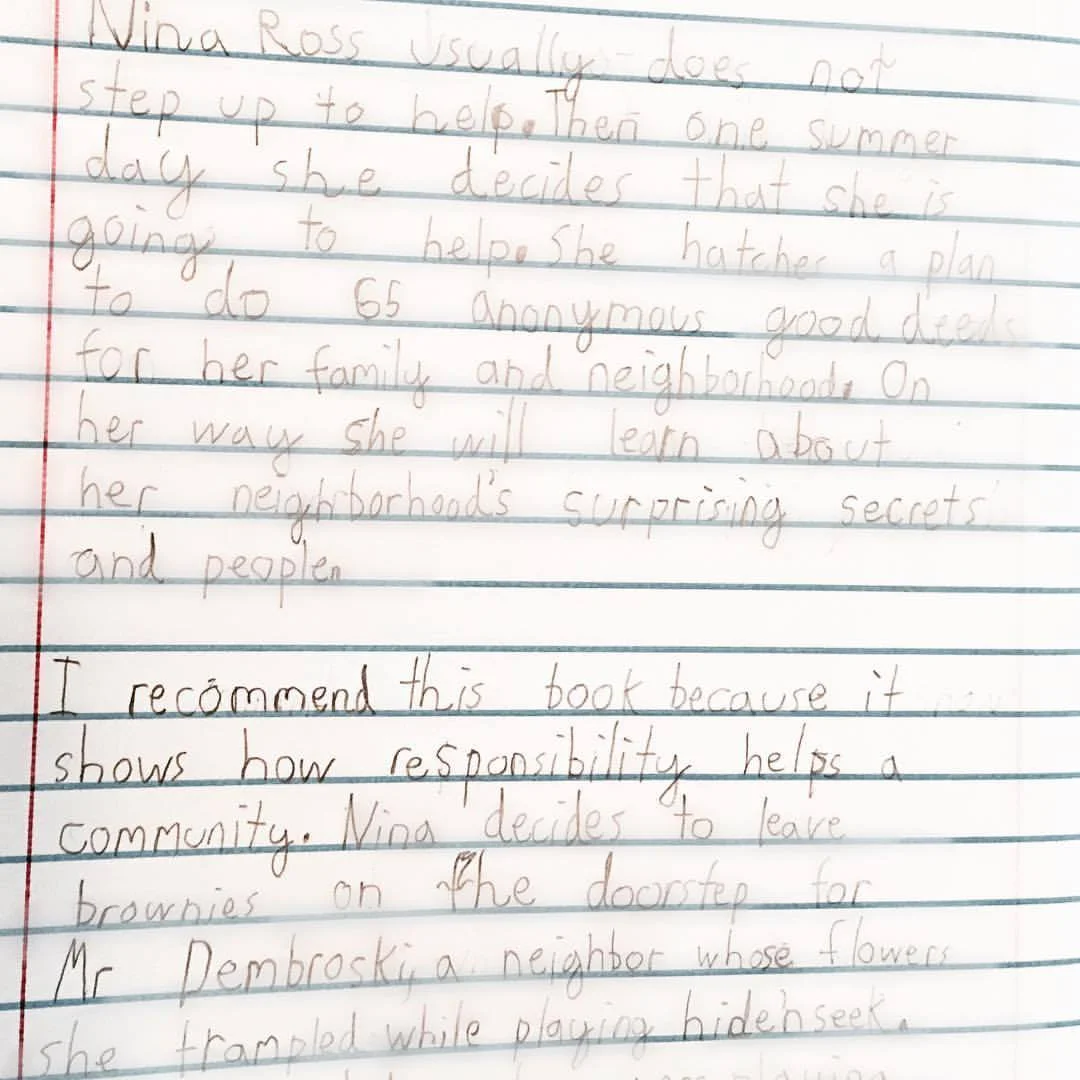 Nina Ross usually does not
step up to help. Then one summer
day she decides that she is
going to help. She hatches a plan
to do 65 anonymous good deeds
for her family and neighborhood. On
her way she will learn about
her neighborhood's surprising secrets
and people.
I recommend this book because it
shows how responsibility helps a
community. Nina decides to leave
brownies on the doorstep for
Mr Dembroski, a neighbor whose flowers
she trampled while playing hide'nseek.
playing